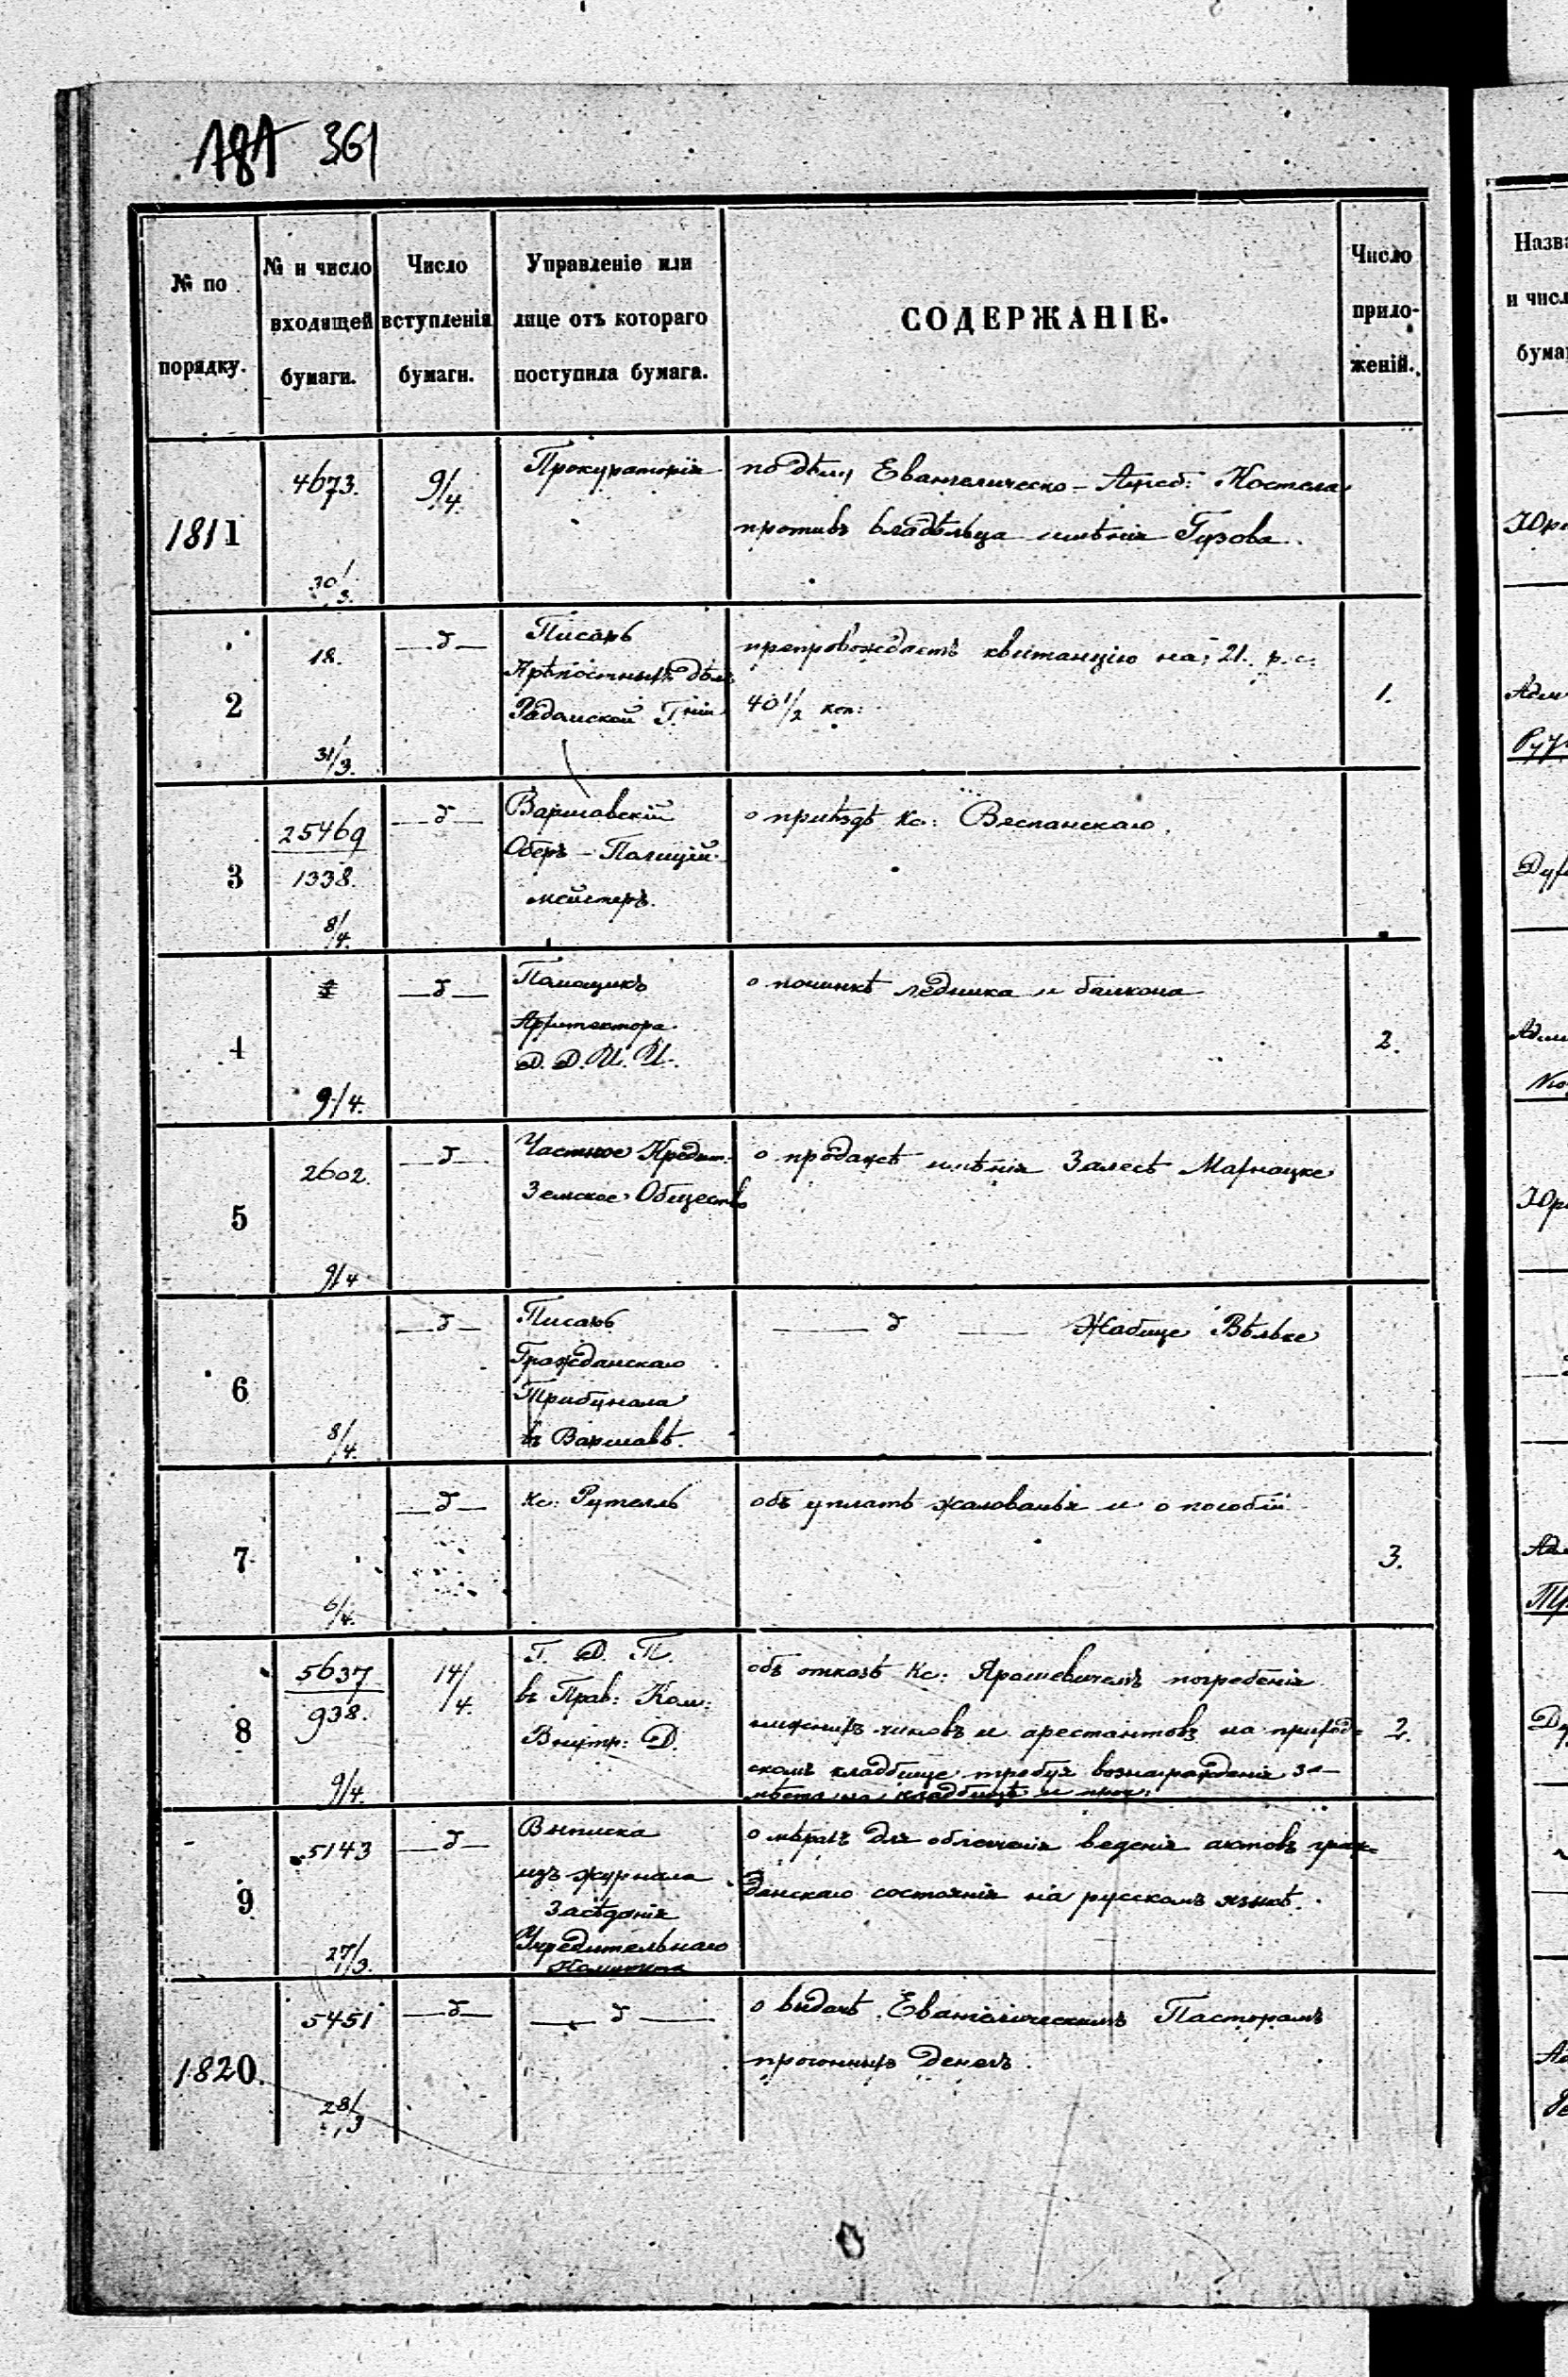 181 361
№ по порядку.
№ и число входящей бумаги.
Число вступленія бумаги.
Управленіе или лице отъ котораго поступила бумага.
СОДЕРЖАНІЕ.
Число приложеній.
1811
4673.
30/3.
9/4.
Прокураторія
по дѣлу Евангелическо-Аугсб: Костела
противъ владѣльца имѣнія Гузова.
2
18.
31/3.
—д—
Писарь
Крѣпостныхъ дѣлъ
Радомской Г.ніи
препровождаетъ квитанцію на 21. р. с:
40 1/2 коп:
1.
3
25469
1338.
8/4.
—д—
Варшавскій
Оберъ-Полицій-
мейстеръ.
о пріѣздѣ Кс:
4
9/4.
—д—
Помощикъ
Архитектора
Д. Д. И. И.
о починкѣ ледника и балкона
2.
5
2602.
9/4
—д—
Частное Кредит.
Земское Общество
о продажѣ имѣнія Залесѣ
6
8/4.
—д—
Писарь
Гражданскаго
Трибунала
въ Варшавѣ.
— д — Жабице Вѣльке
7
6/4.
—д—
кс:
объ уплатѣ жалованья и о пособіи
3.
8
5637
938.
9/4.
14/4.
Г. Д. П.
въ Прав: Ком:
Внутр: Д.
объ отказѣ Кс: Ярошевичемъ погребенія
нижнихъ чиновъ и арестантовъ на приход-
скомъ кладбище требуя вознагражденія за
мѣста на кладбищѣ и проч:
2.
9
5143
27/3.
—д—
Выписка
изъ журнала
Засѣданія
Учредительнаго
Комитета
о мѣрахъ для облегченія веденія актовъ граж-
данскаго состоянія на русскомъ языкѣ.
1820.
5451
28/3
—д—
— д —
о выдачѣ Евангелическимъ Пасторамъ
прогонныхъ денегъ.
Назва
и числ
бума